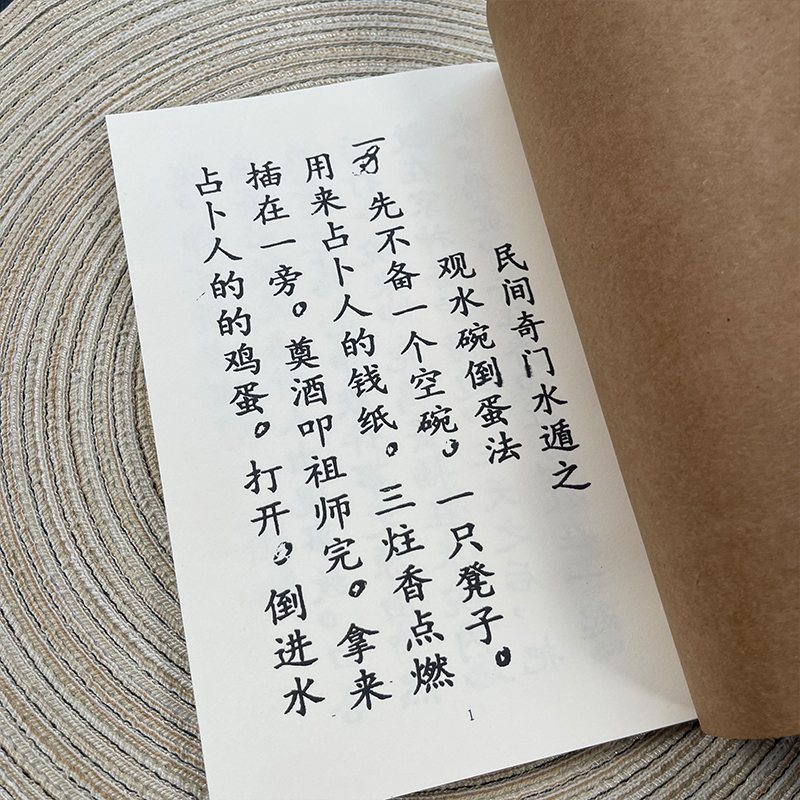 民间奇门水遁之
观水碗倒蛋法
先不备一个空碗。一只凳子。
用来占卜人的钱纸。三炷香点燃
插在一旁。奠酒叩祖师完。拿来
占卜人的的鸡蛋。打开。倒进水
1